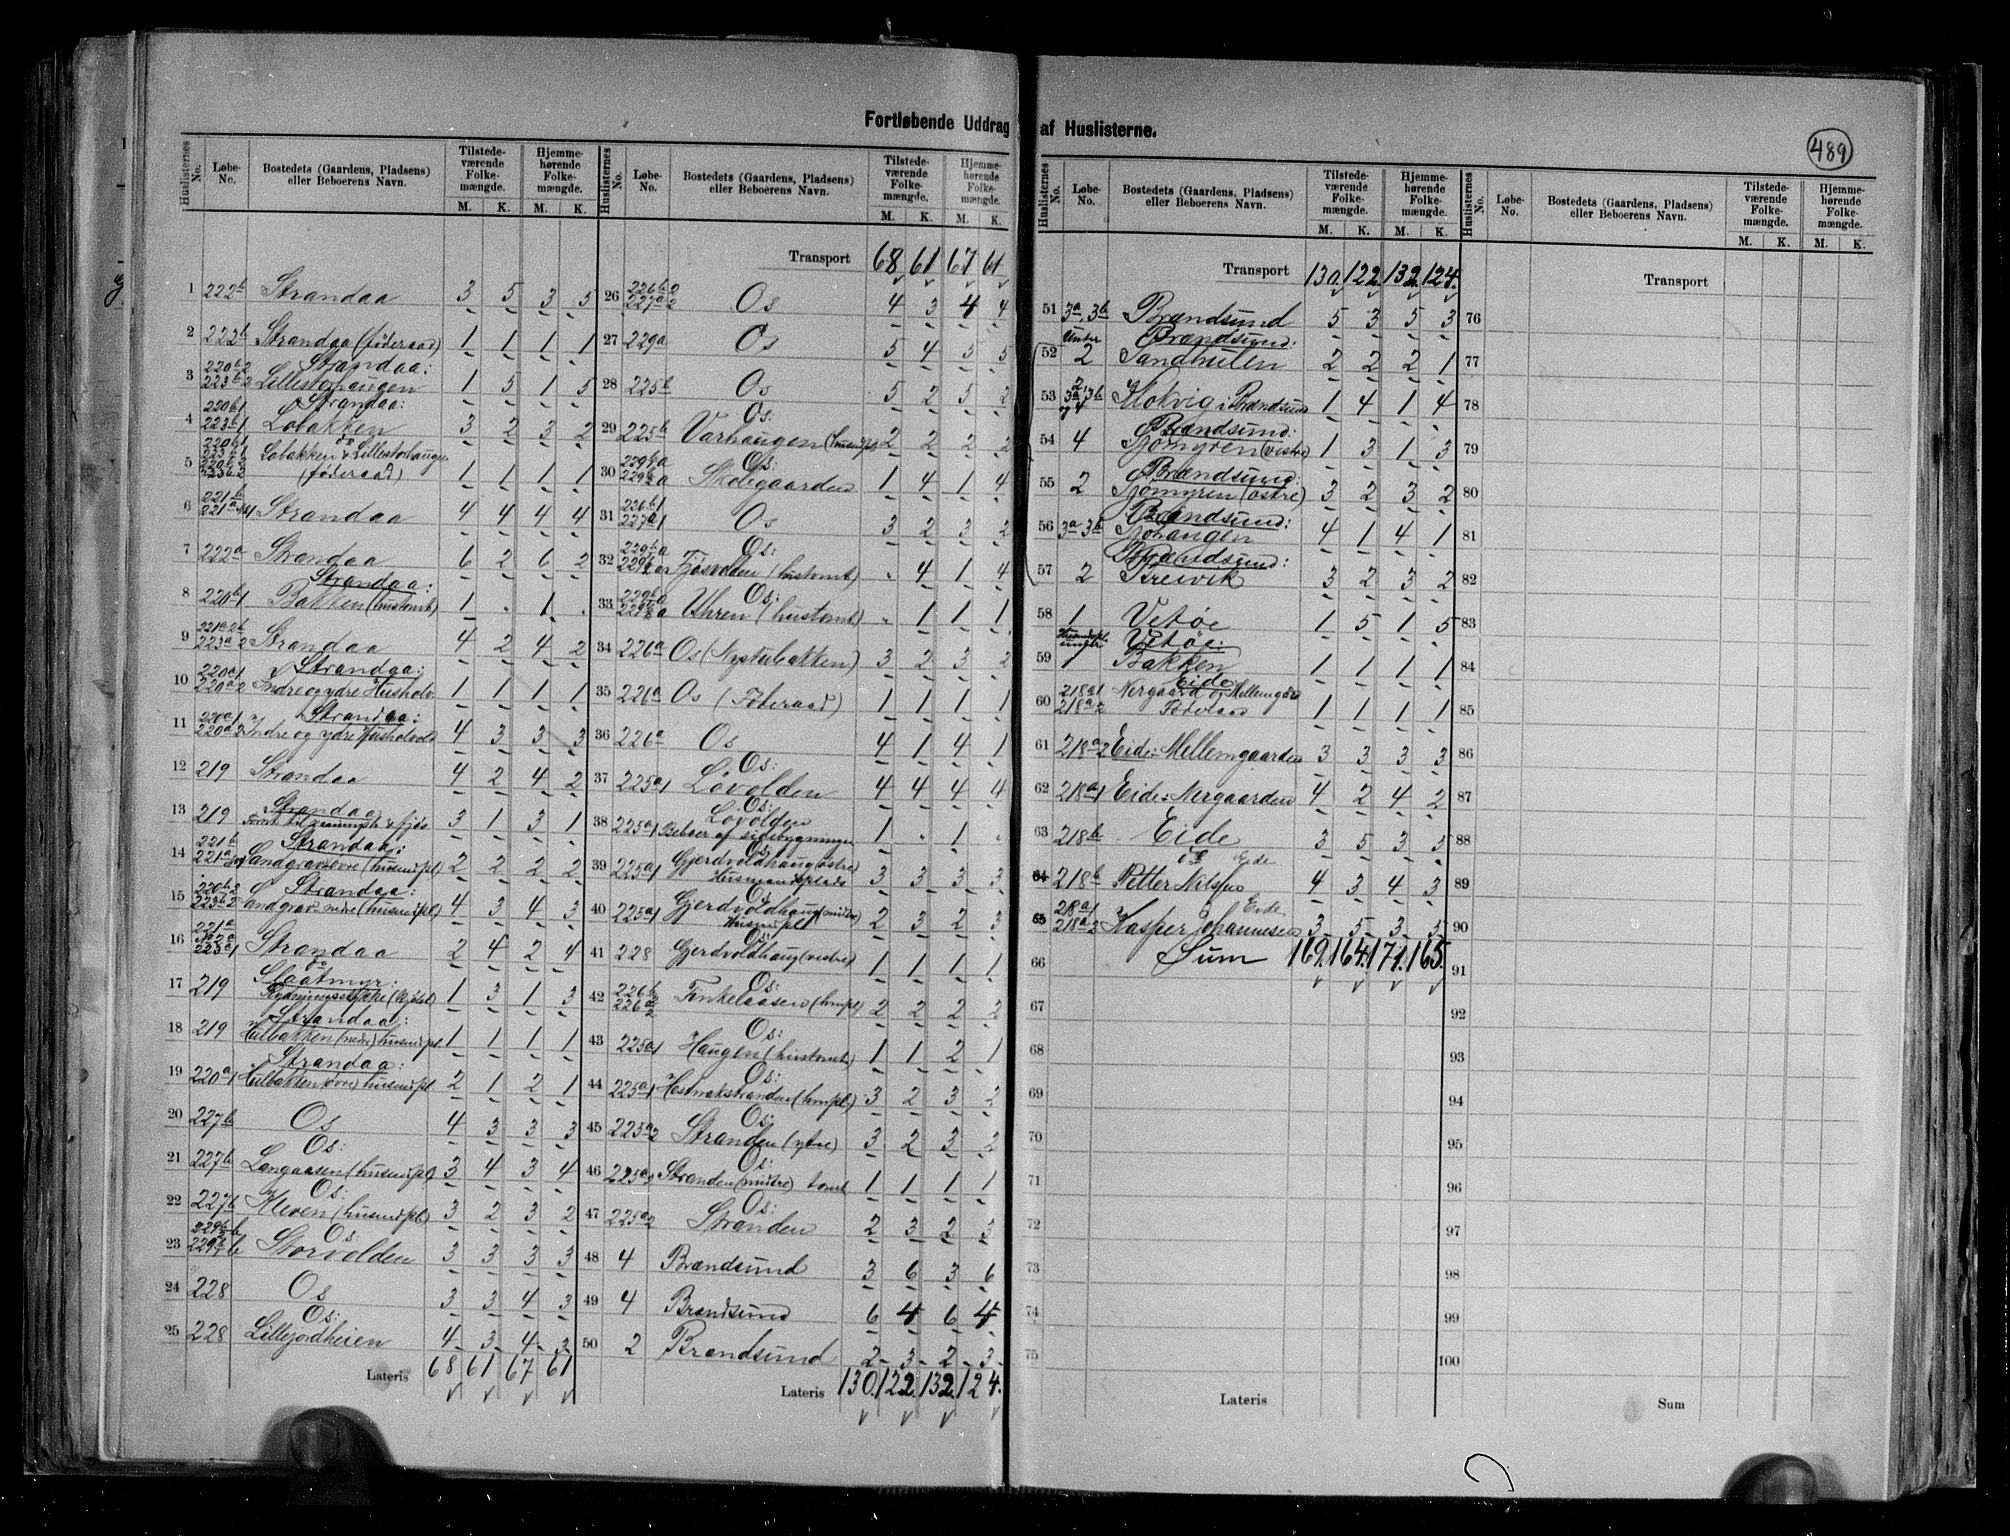 Fortløbende Uddrag af Huslisterne.
489
Huslisternes No. Løbe-No. Bostedets (Gaardens, Pladsens) eller Beboerens Navn. Tilstedeværende Folkemængde. M. K. Hjemmehørende Folkemængde. M. K.
1 222b Strandaa 3 5 3 5
2 223b Strandaa (føderaad) 1 1 1 1
Strandaa:
3 220b2 223b2 Lillestorhaugen 1 5 1 5
Strandaa:
4 220b1 223b1 Lobakken 3 2 3 2
5 220b1 223b1 220b2 223b2 Lobakken & Lillestorhaugen
(føderaad) 1 1 1 1
6 221b 221a Strandaa 4 4 4 4
7 222a Strandaa 6 2 6 2
Strandaa:
8 220b1 Bakken (hustomt) 1 . 1 .
9 221a2b 223a2 Strandaa 4 2 4 2
Strandaa:
10 220a1 220a2 Indre og ydre Hushol 1 1 1 1
Strandaa:
11 220a1 220a2 Indre og ydre Hushol 4 3 3 3
12 219 Strandaa 4 2 4 2
Strandaa
13 219 3 1 3 1
Strandaa:
14 221b 221a Sandgrav øvre (husmdspl) 2 2 2 2
Strandaa:
15 220b2 223b2 Sandgrav nedre (husmdspl) 4 3 4 3
16 221a No 2a 223a1 Strandaa 2 4 2 4
do
Slaatmyr:
17 219 Rydningsstykke 1 3 1 3
Strandaa:
18 219 Hulbakken (nedre) husmdspl 1 1 1 1
Strandaa:
19 220a1 Hulbakken (øvre) husmdspl 2 1 2 1
20 227b Os 4 3 3 3
Os:
21 227b Langaasen (husmdspl) 3 4 3 4
Os:
22 227b Kleven (husmdspl) 3 2 3 2
Os:
23 229b Storvolden 3 3 3 3
24 228 Os 3 3 4 3
Os:
25 228 Lillejordheien 4 3 4 3
Lateris 68 61 67 61
Huslisternes No. Løbe-No. Bostedets (Gaardens, Pladsens) eller Beboerens Navn. Tilstedeværende Folkemængde. M. K. Hjemmehørende Folkemængde. M. K.
Transport 68 61 67 61
26 226b2 227a2 Os 4 3 4 4
27 229a Os 5 4 5 5
28 225b Os 5 2 5 2
Os:
29 225b Varhaugen (husmdspl) 2 2 2 2
Os:
30 229a Skolegaarden 1 4 1 4
31 226b1 227a1 Os 3 2 3 2
Os:
32 229b Fjøsvolden (hustomt) . 4 1 4
Os:
33 229b Uhren (hustomt) . 1 1 1
34 226a Os (Nystubakken) 3 2 3 2
35 226a Os (Føderaad) 1 1 1 1
36 226a Os 4 1 4 1
Os:
37 225a1 Løvolden 4 4 4 4
Os:
Løvolden
38 225a1 Beboer af sidebygningen 1 . 1 .
Os:
39 225a1 Gjerdvoldhaug (østre)
Husmandsplads 3 3 3 3
Os:
40 225a1 Gjerdvoldhaug (midtre)
Husmdspl 2 3 2 3
Os:
41 228 Gjerdvoldhaug (vestre) 1 1 1 1
Os:
42 226b 226a2 Finkelaasen (hmpl) 2 2 2 2
Os:
43 225a1 Haugen (hustomt) 1 1 2 1
Os:
44 225a1 Hestnakstranden (hmpl) 3 2 3 2
Os:
45 225a2 Stranden (ytre) 3 2 3 2
Os:
46 225a2 Stranden (midtre) tomt 1 1 1 1
Os:
47 225a2 Stranden 2 3 2 3
48 4 Brændsund 3 6 3 6
49 4 Brændsund 6 4 6 4
50 2 Brændsund 2 3 2 3
Lateris 130 122 132 124
Huslisternes No. Løbe-No. Bostedets (Gaardens, Pladsens) eller Beboerens Navn. Tilstedeværende Folkemængde. M. K. Hjemmehørende Folkemængde. M. K.
Transport 130 122 132 124
51 3a, 3b Brændsund 5 3 5 3
Under Brændsund:
52 2 Sandhulen 2 2 2 1
53 2, 3a, 3b og 4 Klokvig i Brændsund 1 4 1 4
Brændsund:
54 4 Tjømyren (vestre) 1 3 1 3
Brændsund:
55 2 Tjømyren (østre) 3 2 3 2
Brændsund:
56 3a 3b 4 1 4 1
Brændsund:
57 2 Kreivik 3 2 3 2
58 1 Vetøe 1 5 1 5
Husmdspl. under Vetøe:
59 1 Bakken 1 1 1 1
Eide:
60 218a1 218a2 Nergaard og Mellemgård
Føderaad 1 1 1 1
61 218a2 Eide: Mellemgaarden 3 3 3 3
62 218a1 Eide: Nergaarden 4 2 4 2
63 218b Eide 3 5 3 5
do Eide
64 218b Petter Nilsen 4 3 4 3
Eide
65 218a1 218a2 Kasper Johannesen 3 5 3 5
66 Sum 169 164 171 165
67
68
69
70
71
72
73
74
75
Lateris
Huslisternes No. Løbe-No. Bostedets (Gaardens, Pladsens) eller Beboerens Navn. Tilstedeværende Folkemængde. M. K. Hjemmehørende Folkemængde. M. K.
Transport
76
77
78
79
80
81
82
83
84
85
86
87
88
89
90
91
92
93
94
95
96
97
98
99
100
Sum